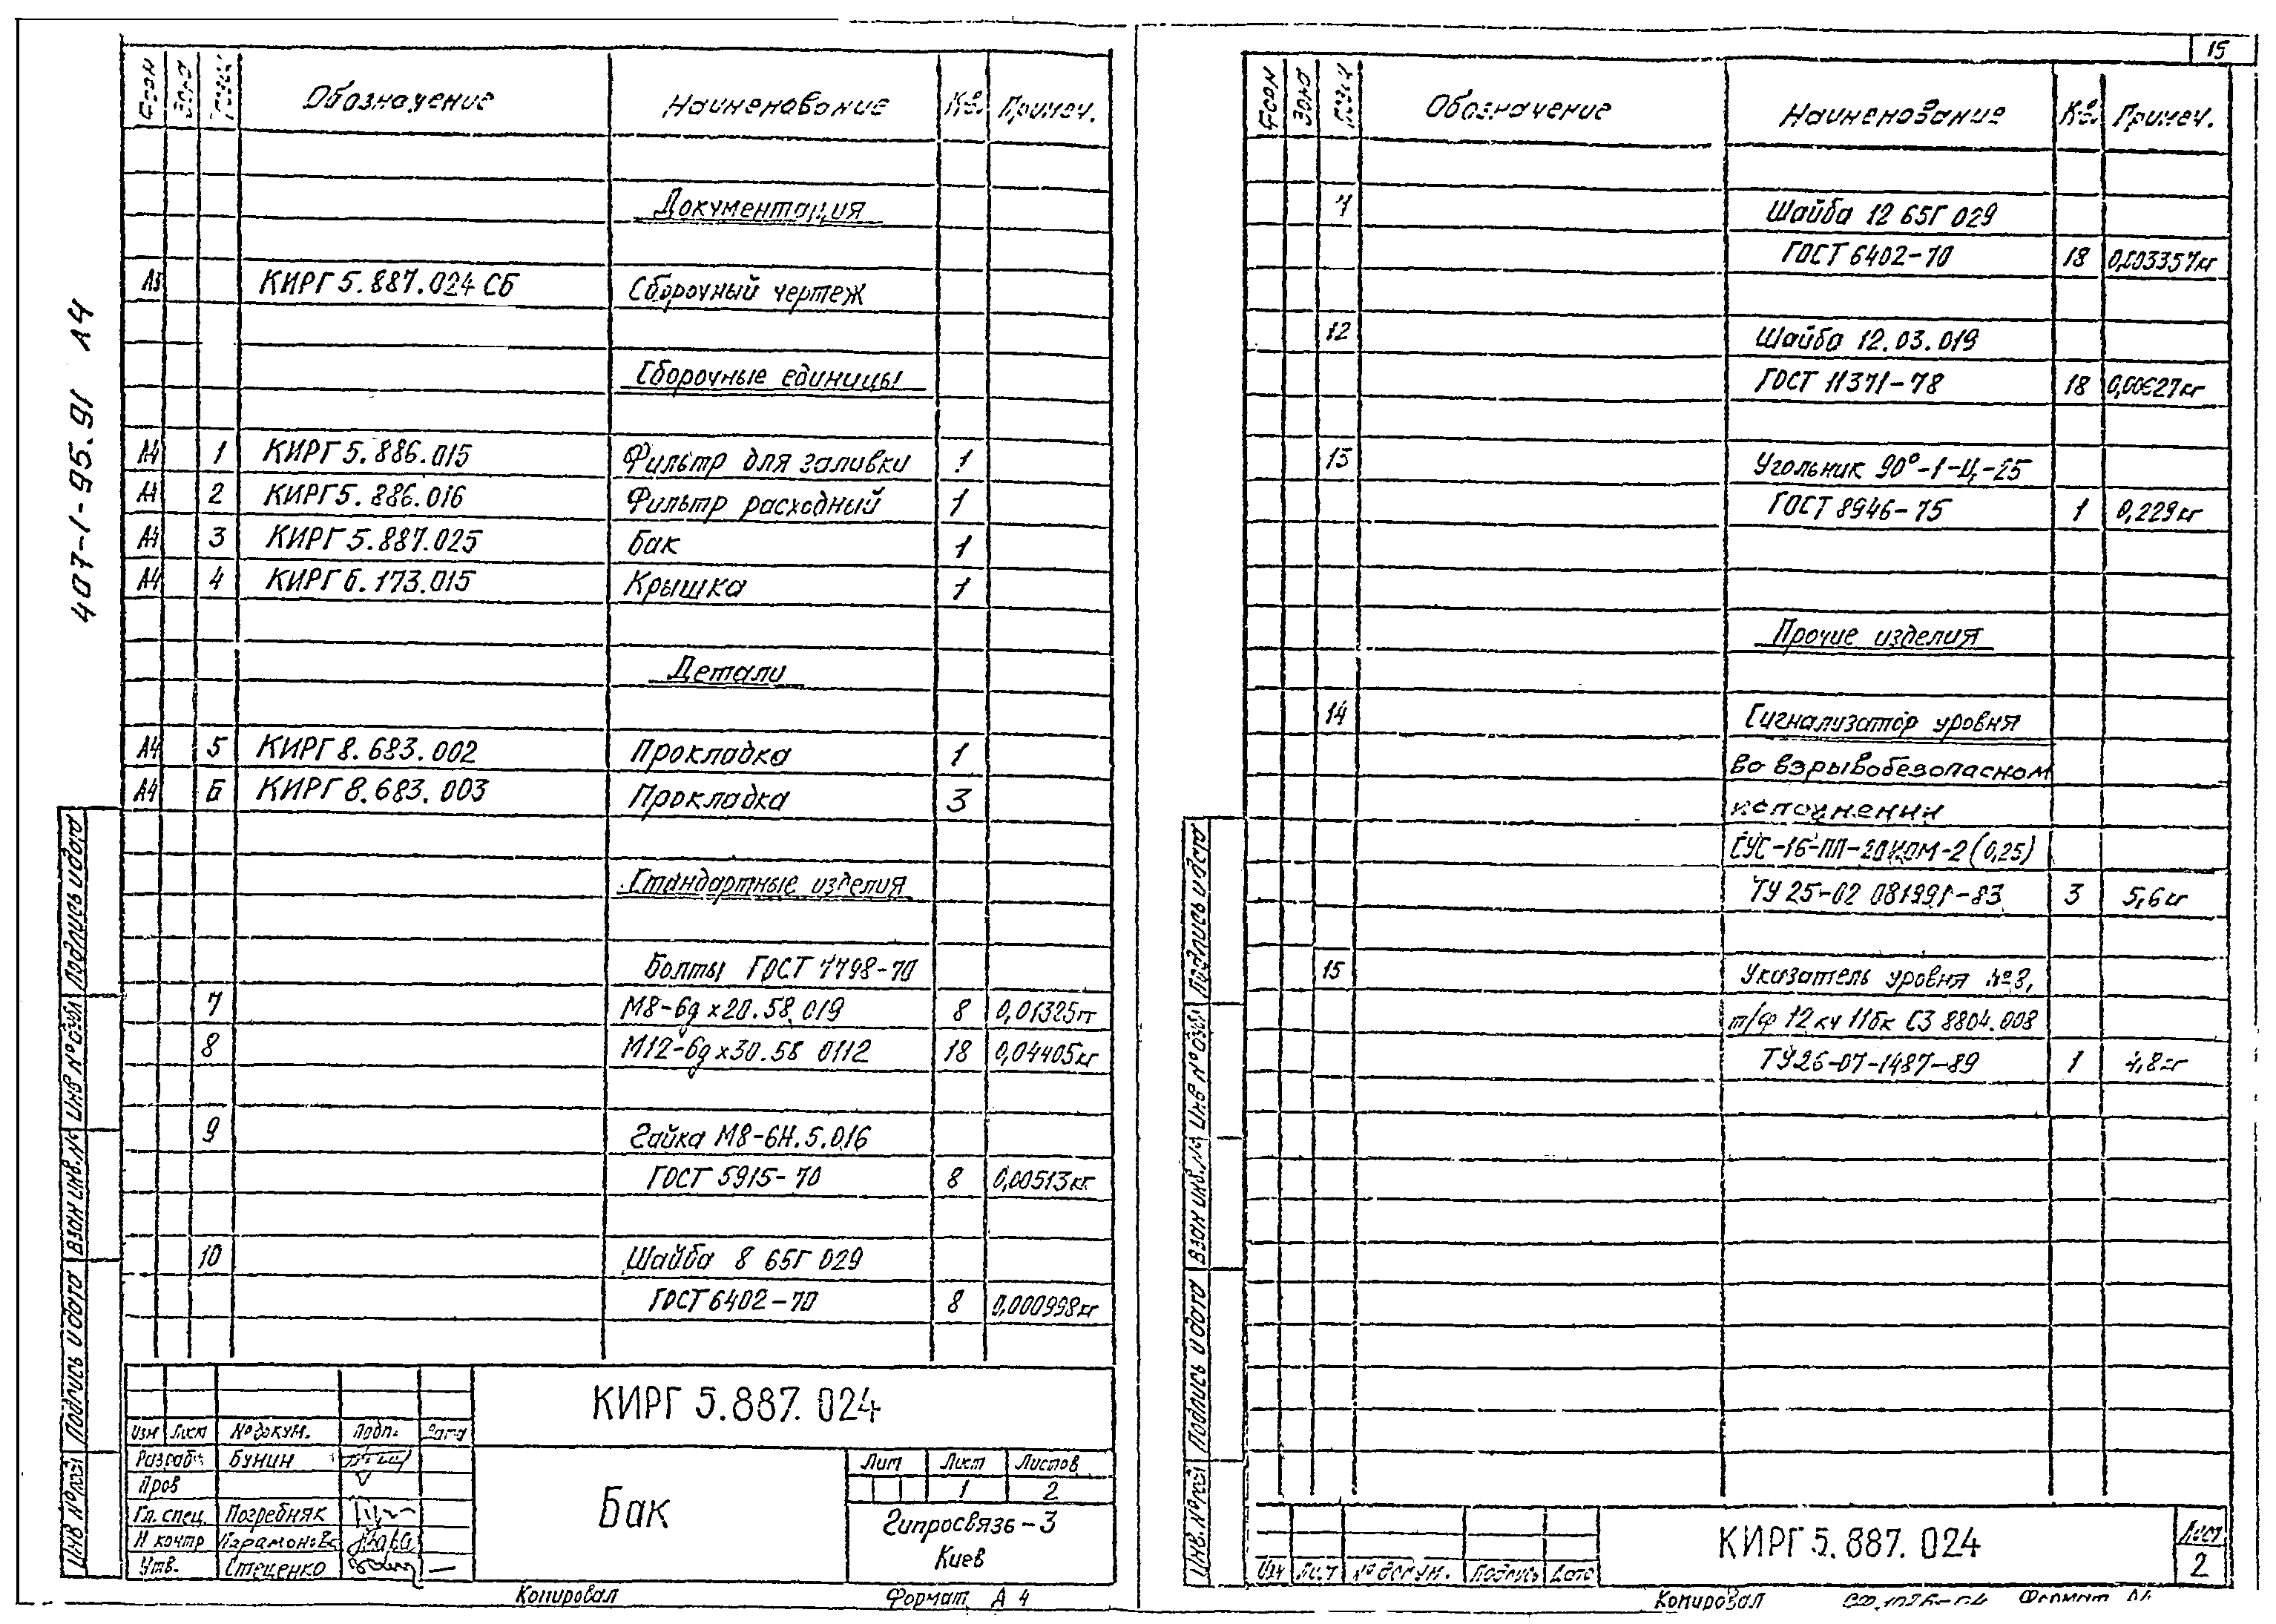 407-1-95.91 А4
Обозначение Наименование Кв. Примеч.
Документация
А3 КИРГ 5.887.024 СБ Сборочный чертеж
Сборочные единицы
А4 1 КИРГ 5.886.015 Фильтр для заливки 1
А4 2 КИРГ 5.886.016 Фильтр расходный 1
А4 3 КИРГ 5.887.025 Бак 1
А4 4 КИРГ 6.173.015 Крышка 1
Детали
А4 5 КИРГ 8.683.002 Прокладка 1
А4 6 КИРГ 8.683.003 Прокладка 3
Стандартные изделия
Болты ГОСТ 7798-70
7 М8-6g x20.58.019 8 0,01325кг
8 М12-6g x30.58 0112 18 0,04405кг
9 Гайка М8-6Н.5.016
ГОСТ 5915-70 8 0,00513кг
10 Шайба 8 65Г 029
ГОСТ 6402-70 8 0,000998кг
КИРГ 5.887.024
Изм Лист № докум. Подп. Дата
Разраб Бунин
Пров
Гл. спец. Погребняк
Н контр Парамонова
Утв. Стеценко
Бак
Лит Лист Листов
1 2
Гипросвязь-3
Киев
Копировал Формат А4
Инв № подл Подпись и дата Взам инв. № Инв № дубл Подпись и дата
15
Обозначение Наименование Кв. Примеч.
Шайба 12 65Г 029
ГОСТ 6402-70 18 0,003357кг
12 Шайба 12.03.019
ГОСТ 11371-78 18 0,00627кг
13 Угольник 90°-1-Ц-25
ГОСТ 8946-75 1 0,229кг
Прочие изделия
14 Сигнализатор уровня
во взрывобезопасном
исполнении
СУС-16-ПП-20КОМ-2 (0,25)
ТУ 25-02 081991-83 3 5,6кг
15 Указатель уровня №3,
т/ф 12кч 11бк СЗ 8804.008
ТУ26-07-1487-89 1 4,8кг
КИРГ 5.887.024
Лист
2
Изм Лист № докум. Подпись Дата
Копировал Формат А4
Инв. № подл Подпись и дата Взам инв. № Инв № дубл Подпись и дата